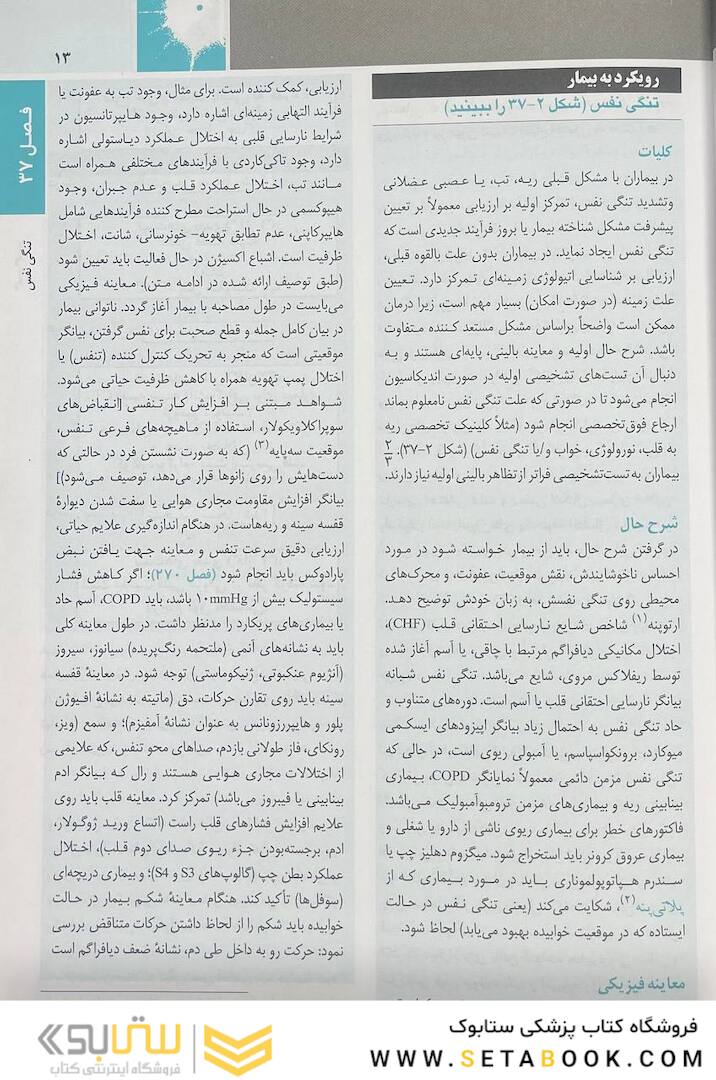 ۱۳
فصل ۳۷
تنگی نفس
رویکرد به بیمار
تنگی نفس (شکل ۲-۳۷ را ببینید)
کلیات
در بیماران با مشکل قبلی ریه، تب، یا عصبی عضلانی
وتشدید تنگی نفس، تمرکز اولیه بر ارزیابی معمولاً بر تعیین
پیشرفت مشکل شناخته بیمار یا بروز فرآیند جدیدی است که
تنگی نفس ایجاد نماید. در بیماران بدون علت بالقوه قبلی،
ارزیابی بر شناسایی اتیولوژی زمینه‌ای تمرکز دارد. تعیین
علت زمینه (در صورت امکان) بسیار مهم است، زیرا درمان
ممکن است واضحاً براساس مشکل مستعد کننده متفاوت
باشد. شرح حال اولیه و معاینه بالینی، پایه‌ای هستند و به
دنبال آن تست‌های تشخیصی اولیه در صورت اندیکاسیون
انجام می‌شود تا در صورتی که علت تنگی نفس نامعلوم بماند
ارجاع فوق‌تخصصی انجام شود (مثلاً کلینیک تخصصی ریه
به قلب، نورولوژی، خواب و/یا تنگی نفس) (شکل ۲-۳۷). ۲/۳
بیماران به تست‌تشخیصی فراتر از تظاهر بالینی اولیه نیاز دارند.
شرح حال
در گرفتن شرح حال، باید از بیمار خواسته شود در مورد
احساس ناخوشایندش، نقش موقعیت، عفونت، و محرک‌های
محیطی روی تنگی نفسش، به زبان خودش توضیح دهد.
ارتوپنه(۱) شاخص شایع نارسایی احتقانی قلب (CHF)،
اختلال مکانیکی دیافراگم مرتبط با چاقی، یا آسم آغاز شده
توسط ریفلاکس مروی، شایع می‌باشد. تنگی نفس شبانه
بیانگر نارسایی احتقانی قلب یا آسم است. دوره‌های متناوب و
حاد تنگی نفس به احتمال زیاد بیانگر اپیزودهای ایسکمی
میوکارد، برونکواسپاسم، یا آمبولی ریوی است، در حالی که
تنگی نفس مزمن دائمی معمولاً نمایانگر COPD، بیماری
بینابینی ریه و بیماری‌های مزمن ترومبوآمبولیک می‌باشد.
فاکتورهای خطر برای بیماری ریوی ناشی از دارو یا شغلی و
بیماری عروق کرونر باید استخراج شود. میگزوم دهلیز چپ یا
سندرم هپاتوپولموناری باید در مورد بیماری که از
پلاتی‌پنه(۲)، شکایت می‌کند (یعنی تنگی نفس در حالت
ایستاده که در موقعیت خوابیده بهبود می‌یابد) لحاظ شود.
معاینه فیزیکی
ارزیابی، کمک کننده است. برای مثال، وجود تب به عفونت یا
فرآیند التهابی زمینه‌ای اشاره دارد، وجود هایپرتانسیون در
شرایط نارسایی قلبی به اختلال عملکرد دیاستولی اشاره
دارد، وجود تاکی‌کاردی با فرآیندهای مختلفی همراه است
مانند تب، اختلال عملکرد قلب و عدم جبران، وجود
هیپوکسمی در حال استراحت مطرح کننده فرآیندهایی شامل
هایپرکاپنی، عدم تطابق تهویه- خونرسانی، شانت، اختلال
ظرفیت است. اشباع اکسیژن در حال فعالیت باید تعیین شود
(طبق توصیف ارائه شده در ادامه متن). معاینه فیزیکی
می‌بایست در طول مصاحبه با بیمار آغاز گردد. ناتوانی بیمار
در بیان کامل جمله و قطع صحبت برای نفس گرفتن، بیانگر
موقعیتی است که منجر به تحریک کنترل کننده (تنفس) یا
اختلال پمپ تهویه همراه با کاهش ظرفیت حیاتی می‌شود.
شواهد مبتنی بر افزایش کار تنفسی [انقباض‌های
سوپراکلاویکولار، استفاده از ماهیچه‌های فرعی تنفس،
موقعیت سه‌پایه(۳) (که به صورت نشستن فرد در حالتی که
دست‌هایش را روی زانوها قرار می‌دهد، توصیف می‌شود)]
بیانگر افزایش مقاومت مجاری هوایی یا سفت شدن دیوارهٔ
قفسه سینه و ریه‌هاست. در هنگام اندازه‌گیری علایم حیاتی،
ارزیابی دقیق سرعت تنفس و معاینه جهت یافتن نبض
پارادوکس باید انجام شود (فصل ۲۷۰)؛ اگر کاهش فشار
سیستولیک بیش از ۱۰mmHg باشد، باید COPD، آسم حاد
یا بیماری‌های پریکارد را مدنظر داشت. در طول معاینه کلی
باید به نشانه‌های آنمی (ملتحمه رنگ‌پریده) سیانوز، سیروز
(آنژیوم عنکبوتی، ژنیکوماستی) توجه شود. در معاینهٔ قفسه
سینه باید روی تقارن حرکات، دق (ماتیته به نشانهٔ افیوژن
پلور و هایپررزونانس به عنوان نشانهٔ آمفیزم)؛ و سمع (ویز،
رونکای، فاز طولانی بازدم، صداهای محو تنفس، که علایمی
از اختلالات مجاری هوایی هستند و رال که بیانگر ادم
بینابینی یا فیبروز می‌باشد) تمرکز کرد. معاینه قلب باید روی
علایم افزایش فشارهای قلب راست (اتساع ورید ژوگولار،
ادم، برجسته‌بودن جزء ریوی صدای دوم قلب)، اختلال
عملکرد بطن چپ (گالوپ‌های S3 و S4)؛ و بیماری دریچه‌ای
(سوفل‌ها) تأکید کند. هنگام معاینهٔ شکم بیمار در حالت
خوابیده باید شکم را از لحاظ داشتن حرکات متناقض بررسی
نمود: حرکت رو به داخل طی دم، نشانهٔ ضعف دیافراگم است
فروشگاه کتاب پزشکی ستابوک
WWW.SETABOOK.COM
ستابوک
فروشگاه اینترنتی کتاب